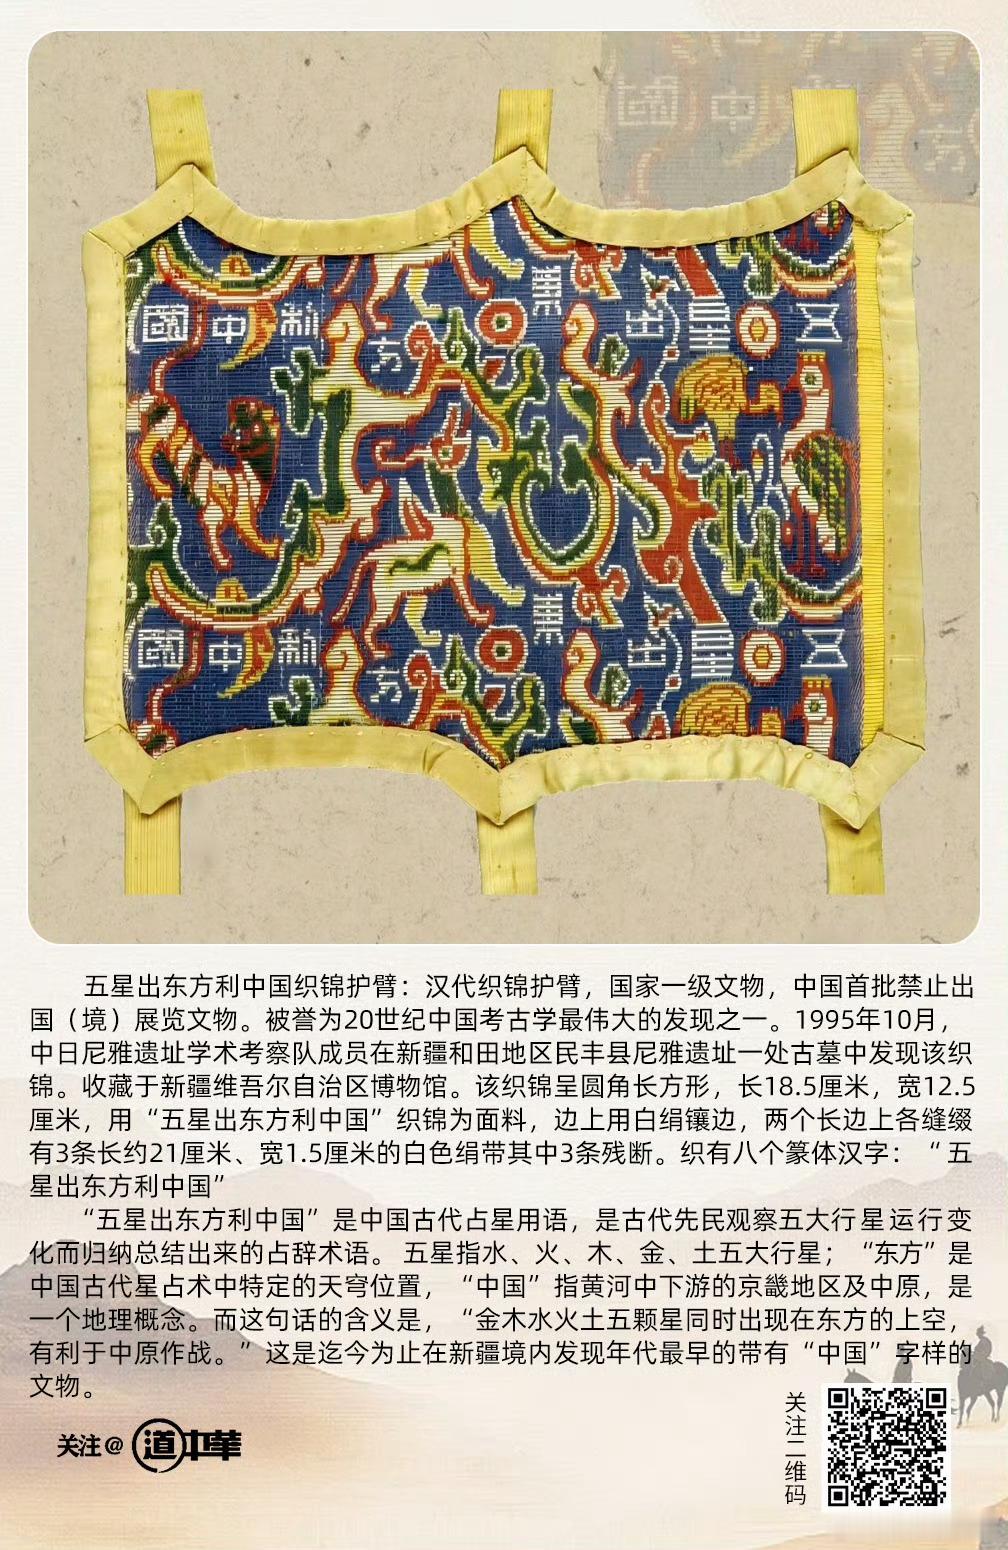 國 中 利 方 東 出 星 五
國 中 利 方 東 出 星 五
五星出东方利中国织锦护臂：汉代织锦护臂，国家一级文物，中国首批禁止出
国（境）展览文物。被誉为20世纪中国考古学最伟大的发现之一。1995年10月，
中日尼雅遗址学术考察队成员在新疆和田地区民丰县尼雅遗址一处古墓中发现该织
锦。收藏于新疆维吾尔自治区博物馆。该织锦呈圆角长方形，长18.5厘米，宽12.5
厘米，用“五星出东方利中国”织锦为面料，边上用白绢镶边，两个长边上各缝缀
有3条长约21厘米、宽1.5厘米的白色绢带其中3条残断。织有八个篆体汉字：“五
星出东方利中国”
“五星出东方利中国”是中国古代占星用语，是古代先民观察五大行星运行变
化而归纳总结出来的占辞术语。 五星指水、火、木、金、土五大行星；“东方”是
中国古代星占术中特定的天穹位置，“中国”指黄河中下游的京畿地区及中原，是
一个地理概念。而这句话的含义是，“金木水火土五颗星同时出现在东方的上空，
有利于中原作战。”这是迄今为止在新疆境内发现年代最早的带有“中国”字样的
文物。
关注@道中华
关注二维码